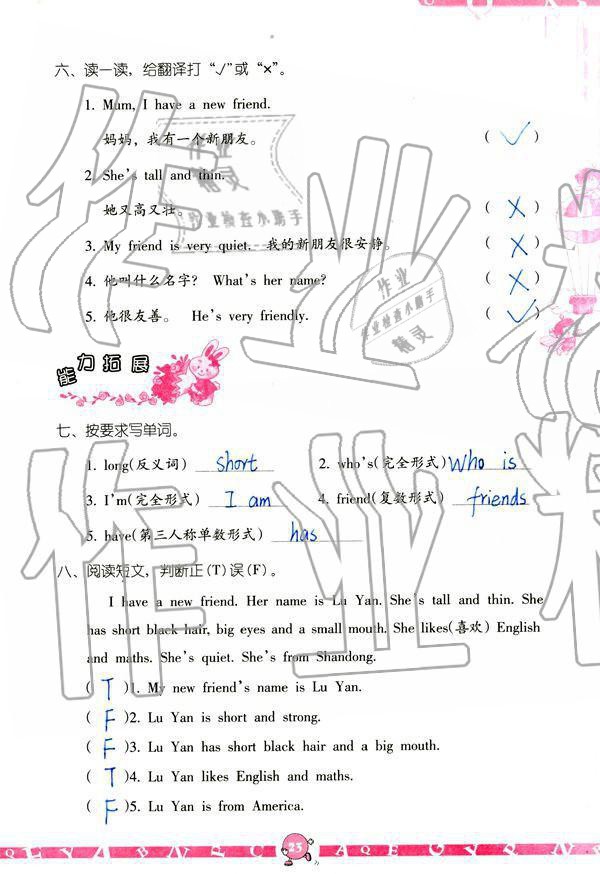 六、读一读，给翻译打“√”或“×”。
1. Mum, I have a new friend.
妈妈，我有一个新朋友。 ( √ )
2. She's tall and thin.
她又高又壮。 ( × )
3. My friend is very quiet. 我的新朋友很安静。 ( × )
4. 他叫什么名字? What's her name? ( × )
5. 他很友善。 He's very friendly. ( √ )
能力拓展
七、按要求写单词。
1. long(反义词) short 2. who's(完全形式) who is
3. I'm(完全形式) I am 4. friend(复数形式) friends
5. have(第三人称单数形式) has
八、阅读短文，判断正(T)误(F)。
I have a new friend. Her name is Lu Yan. She's tall and thin. She
has short black hair, big eyes and a small mouth. She likes(喜欢) English
and maths. She's quiet. She's from Shandong.
( T )1. My new friend's name is Lu Yan.
( F )2. Lu Yan is short and strong.
( F )3. Lu Yan has short black hair and a big mouth.
( T )4. Lu Yan likes English and maths.
( F )5. Lu Yan is from America.
23
作业
精灵
作业检查小助手
作业
作业检查小助手
精灵
作业
作业